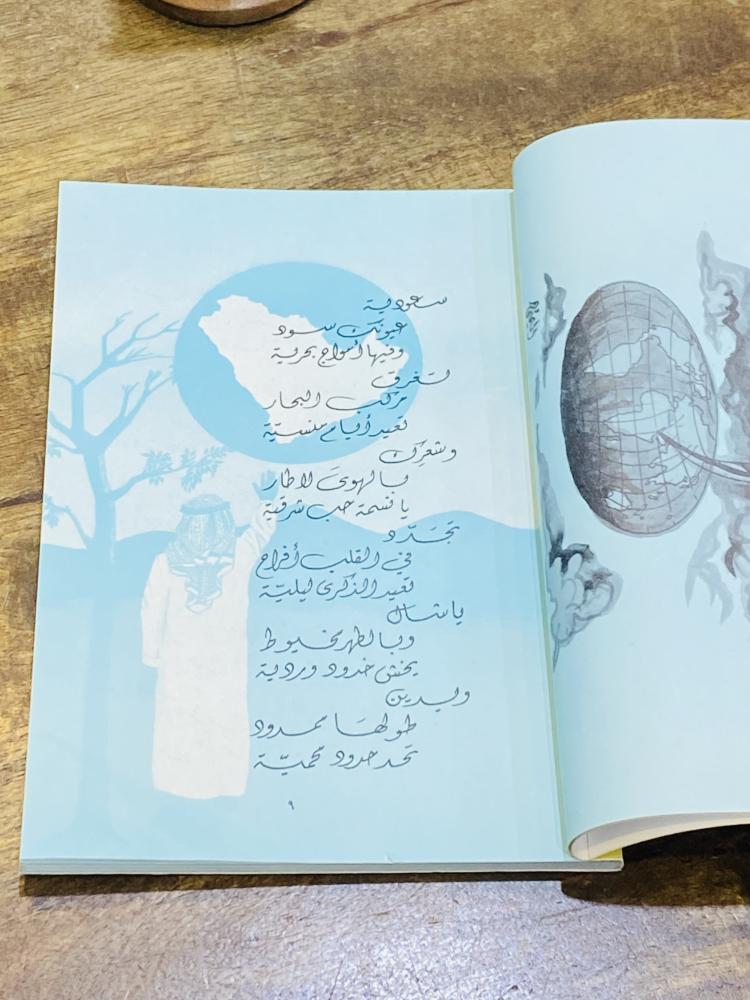 سعودية
عيونك سود
وفيها أمواج بحرية
لتغرق
مركب البحار
تعيد أيام منسيّة
وشعرِك
بالهوىَ لا طار
يا نسمة حب شرقية
تجَدّد
في القلب أفراح
تعيد الذكرى ليليّة
يا شال
وبالطهر مخيوط
يخشى خدود وردية
وليدين
طولهَا ممدود
تحد حدود محميّة
٩